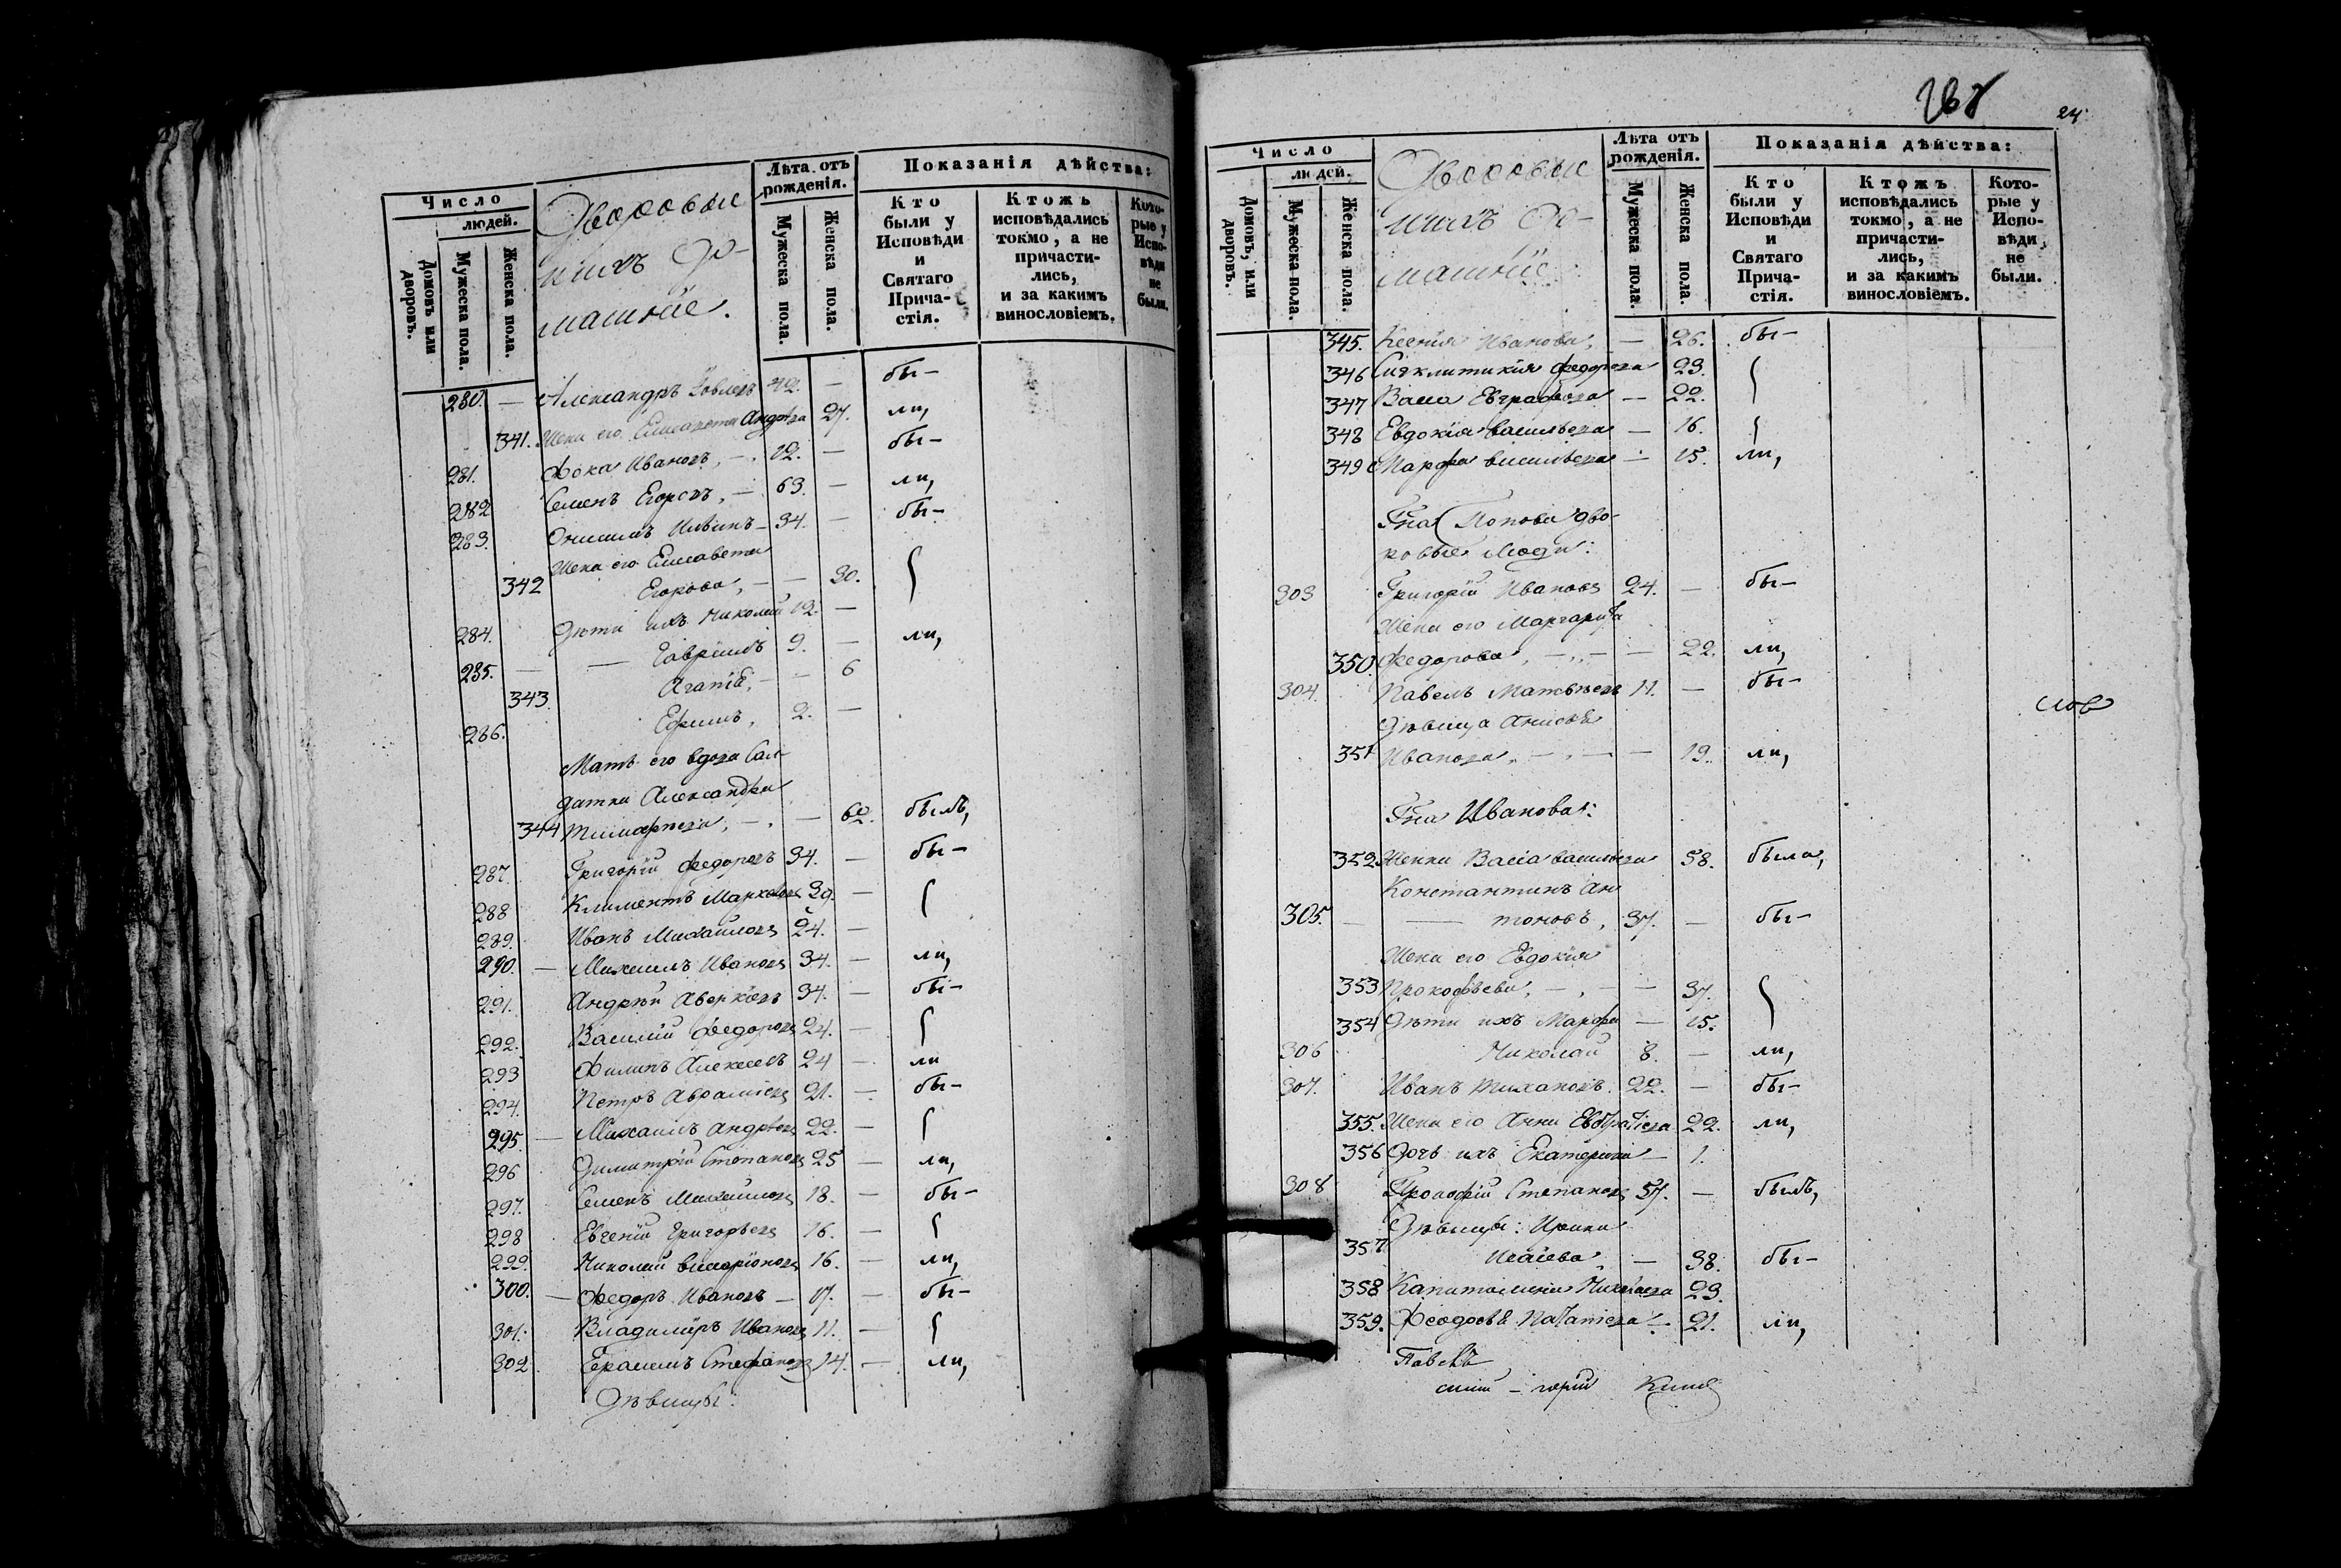 Число
людей.
Домовъ или дворовъ.
Мужеска пола.
Женска пола.
Дворовыи
ихъ до-
машніе.
Лѣта отъ рожденія.
Мужеска пола.
Женска пола.
Показанія дѣйства:
Кто были у Исповѣди и Святаго Прича-стія.
Ктожъ исповѣдались токмо, а не причасти-лись, и за какимъ винословіемъ.
Кото-рые у Испо-вѣди не были.
280. — Александръ 42. — бы-
341. Жена его Елисавета Андрѣева 27. ли,
281. Фока Ивановъ, — 12. — бы-
282 Семенъ Егоровъ, — 63. — ли,
283. Онисимъ Ильинъ — 34. — бы-
Жена его Елисавета
342 Егорова, — — 30.
284. Дѣти ихъ Николай 12. —
285. — — Гавріилъ 9. — ли,
343. Агапія, — — 6
286. Ефимъ, 2. —
Мать его вдова Сол-
датка Александра
344 Тимофѣева, — . — 62. былъ,
287. Григорій Федоровъ 34. — бы-
288 Климентъ Марковъ 39. —
289. Иванъ Михайловъ 24. —
290. — Михаилъ Ивановъ 34. — ли,
291. Андрѣй Аверкіевъ 34. — бы-
292. Василій Федоровъ 24. —
293 Филипъ Алексѣевъ 24 — ли
294. Петръ Авраміевъ 21. — бы-
295. — Михаилъ Андрѣевъ 22. —
296 Димитрій Степановъ 25 — ли,
297. Семенъ Михайловъ 18. — бы-
298 Евгеній Григорьевъ 16. —
299. Николай Виссаріоновъ 16. — ли,
300. — Федоръ Ивановъ — 17. — бы-
301. Владиміръ Ивановъ 11. —
302. Герасимъ Стефановъ 14. — ли,
Дѣвицы:
268
24
Число
людей.
Домовъ, или дворовъ.
Мужеска пола.
Женска пола.
Дворовыи
ихъ до-
машніе
Лѣта отъ рожденія.
Мужеска пола.
Женска пола.
Показанія дѣйства:
Кто были у Исповѣди и Святаго Прича-стія.
Ктожъ исповѣдались токмо, а не причасти-лись, и за какимъ винословіемъ.
Кото-рые у Испо-вѣди, не были.
345. Ксенія Иванова, — 26. бы-
346 Сигклитикія Федорова 23.
347 Васса Евграфова — 22.
348 Евдокія Васильева — 16.
349 Марфа Васильева — 15. ли,
Гна Попова дво-
ровые люди:
303 Григорій Ивановъ 24. — бы-
Жена его Маргарита
350. Федорова, — — — 22. ли,
304. Павелъ Матвѣевъ 11. — бы-
слов
Дѣвица Анисья
351 Иванова, — — — 19. ли,
Гна Иванова:
352 Женка Васса Васильева 58. была,
Константинъ Ан
305. — — тоновъ, 37. — бы-
Жена его Евдокія
353 Прокофьева, — — — 37.
354 Дѣти ихъ Марфа — 15.
306 Николай 8. — ли,
307. Иванъ Тихановъ. 22. — бы-
355. Жена его Анна 22. ли,
356 Дочь ихъ Екатерина — 1.
308 Прокофій Степановъ 57. — былъ,
Дѣвицы: Ирина
357 Исаіева, — 38. бы-
358 Капитолина Николаева 23.
359. Феодосья — 21. ли,
Павелъ